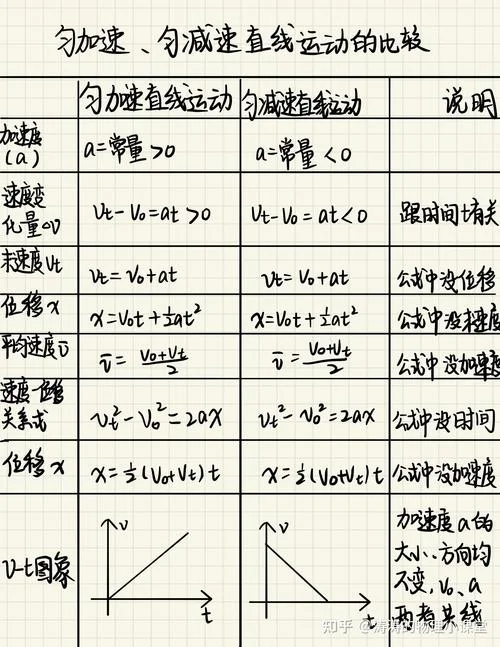 匀加速、匀减速直线运动的比较
匀加速直线运动 匀减速直线运动 说明
加速度(a) a=常量>0 a=常量<0
速度变化量△v vt-v0=at>0 vt-v0=at<0 跟时间t有关
末速度vt vt=v0+at vt=v0+at 公式中没位移
位移x x=v0t+½at² x=v0t+½at² 公式中没末速度
平均速度v̅ v̅=(v0+vt)/2 v̅=(v0+vt)/2 公式中没加速度
速度-位移关系式 vt²-v0²=2ax vt²-v0²=2ax 公式中没时间
位移x x=½(v0+vt)t x=½(v0+vt)t 公式中没加速度
v-t图象 v t v t 加速度a的大小、方向均不变,v0、a两者共线
知乎 @涛涛的物理小课堂